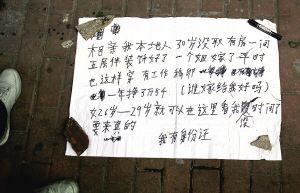 相亲 我本地人 30岁没取 有房一间
五层件装饰好了 一个姐嫁了 平时
也这样穿 有工作
一年挣3万54 (谁嫁给我好吗)
女26岁—29岁就可以在这里看我 时间了
要来真的
我有身份证